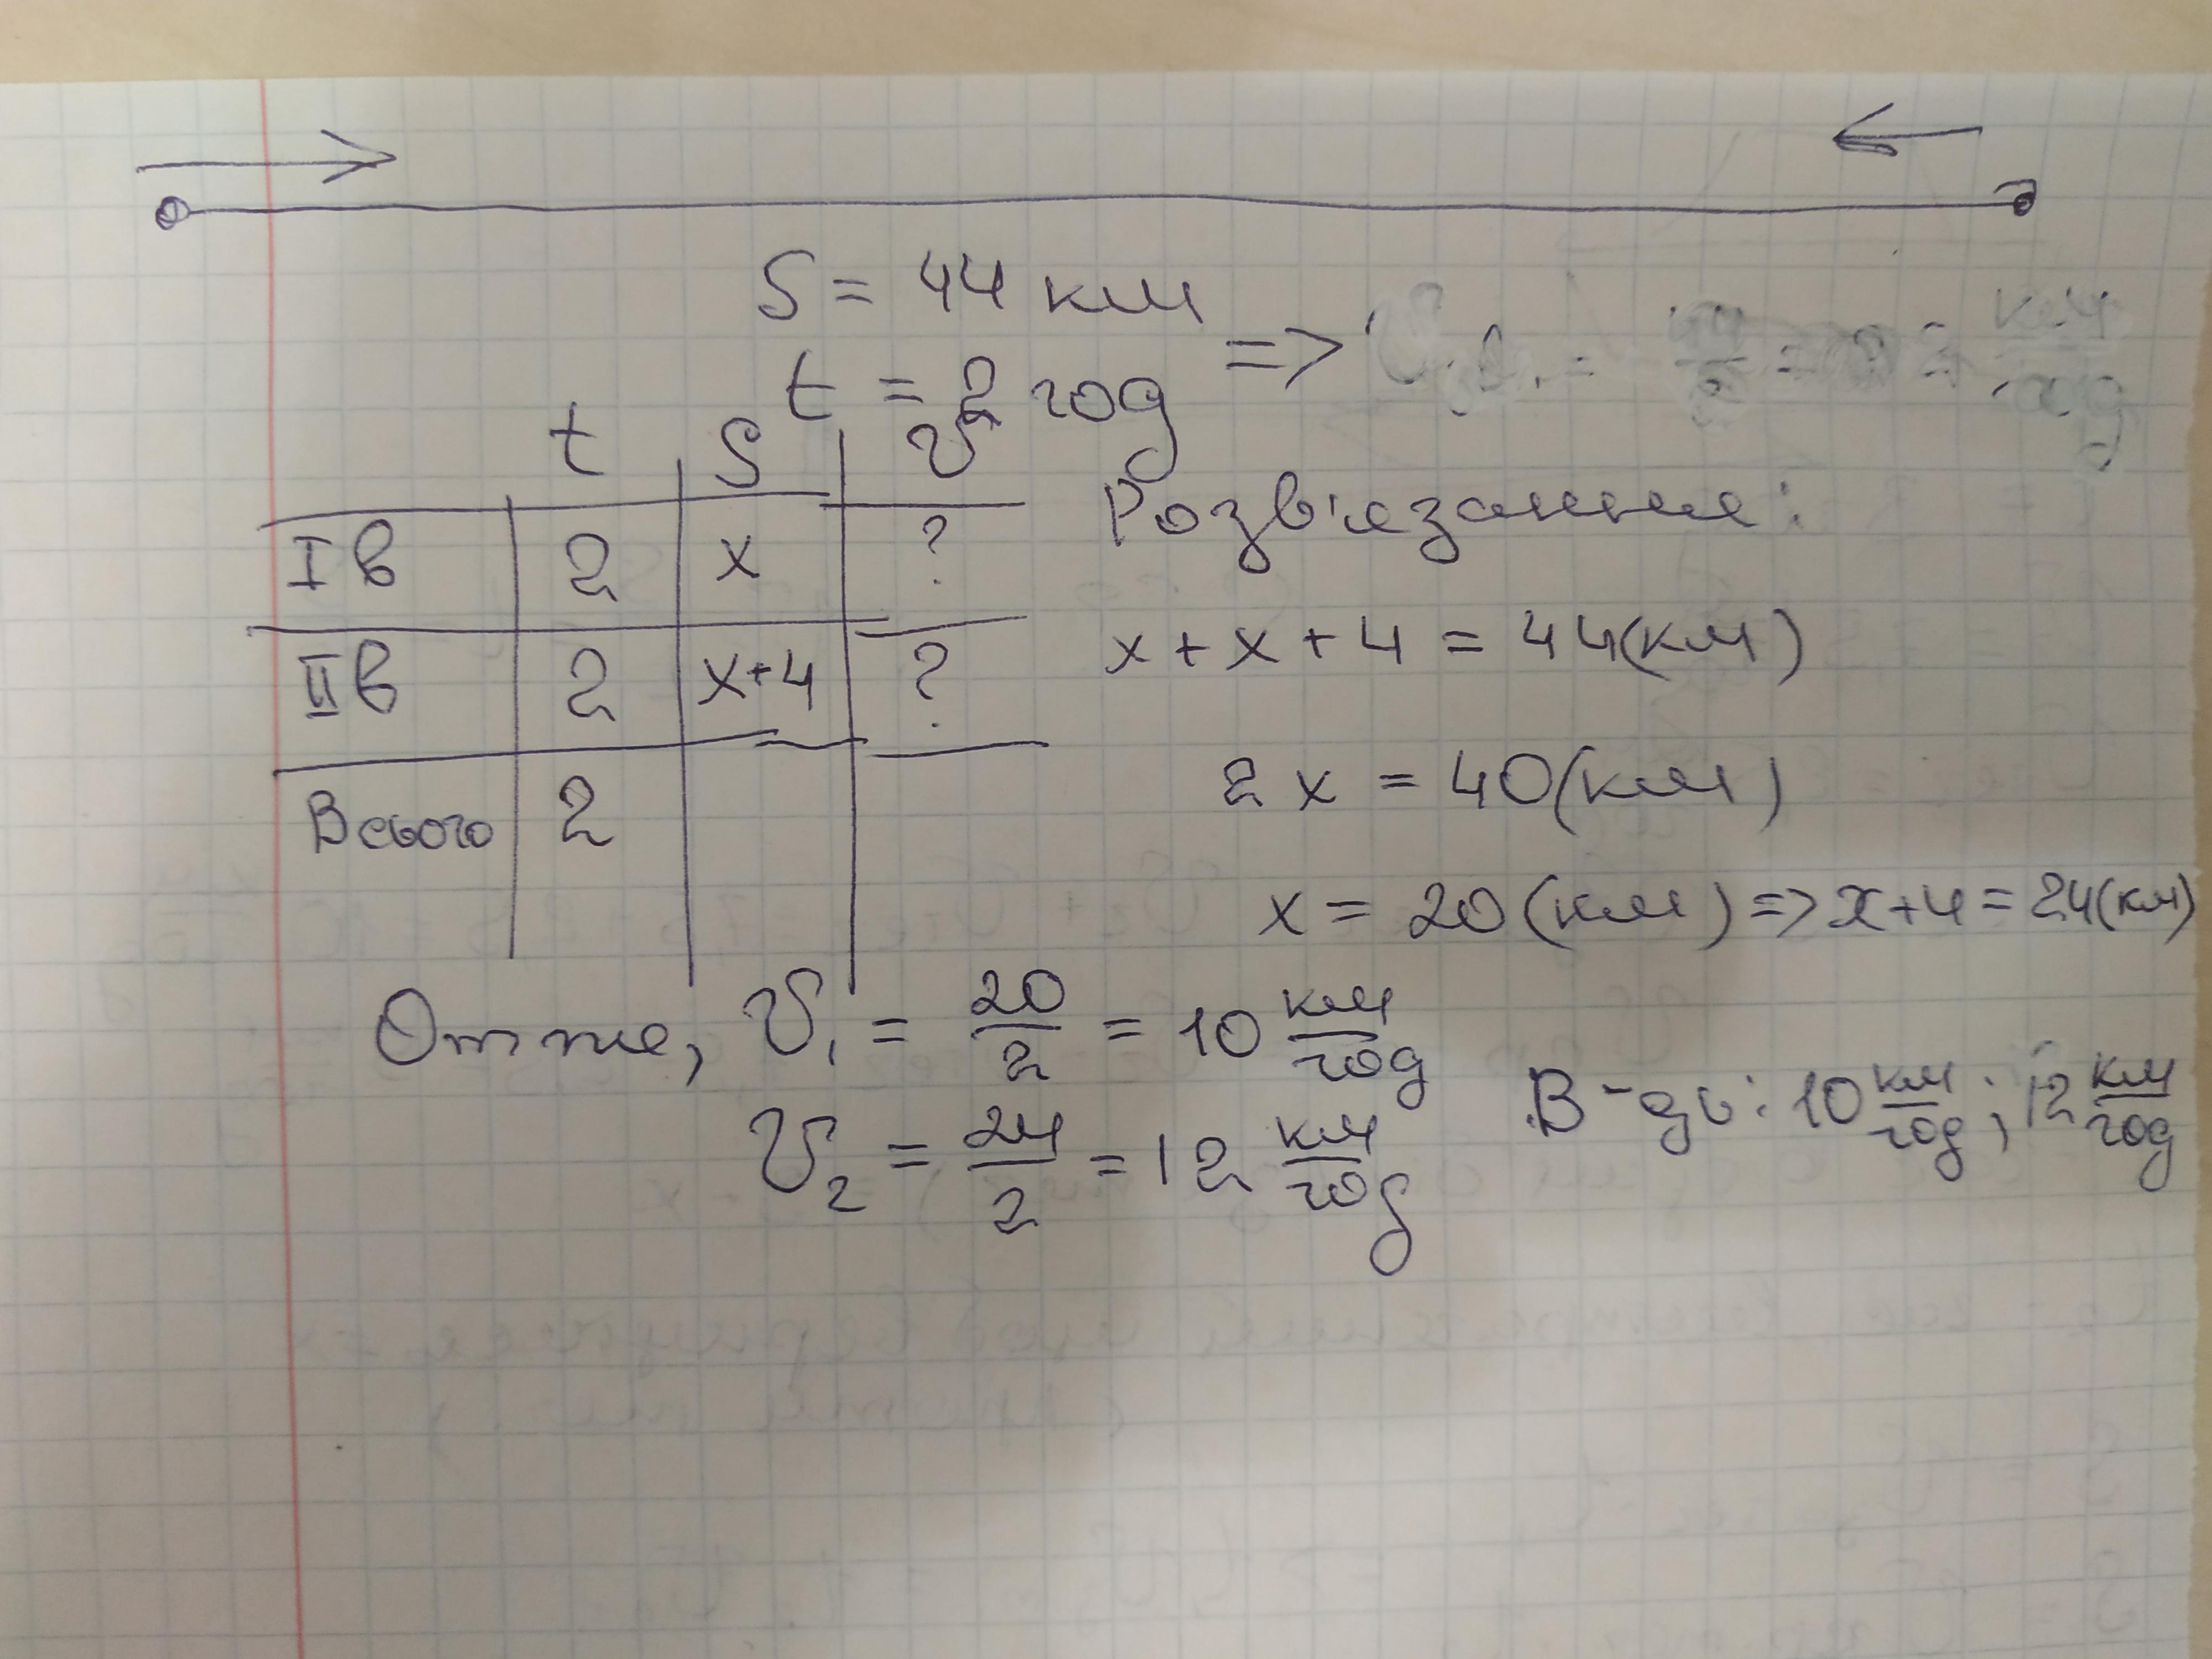 S = 44 км
t = 2 год =>
t S v
I в 2 x ?
II в 2 x+4 ?
Всього 2
Розв'язання:
x + x + 4 = 44(км)
2x = 40(км)
x = 20(км) => x+4 = 24(км)
Отже, v₁ = 20/2 = 10 км/год
v₂ = 24/2 = 12 км/год
В-дь: 10 км/год; 12 км/год